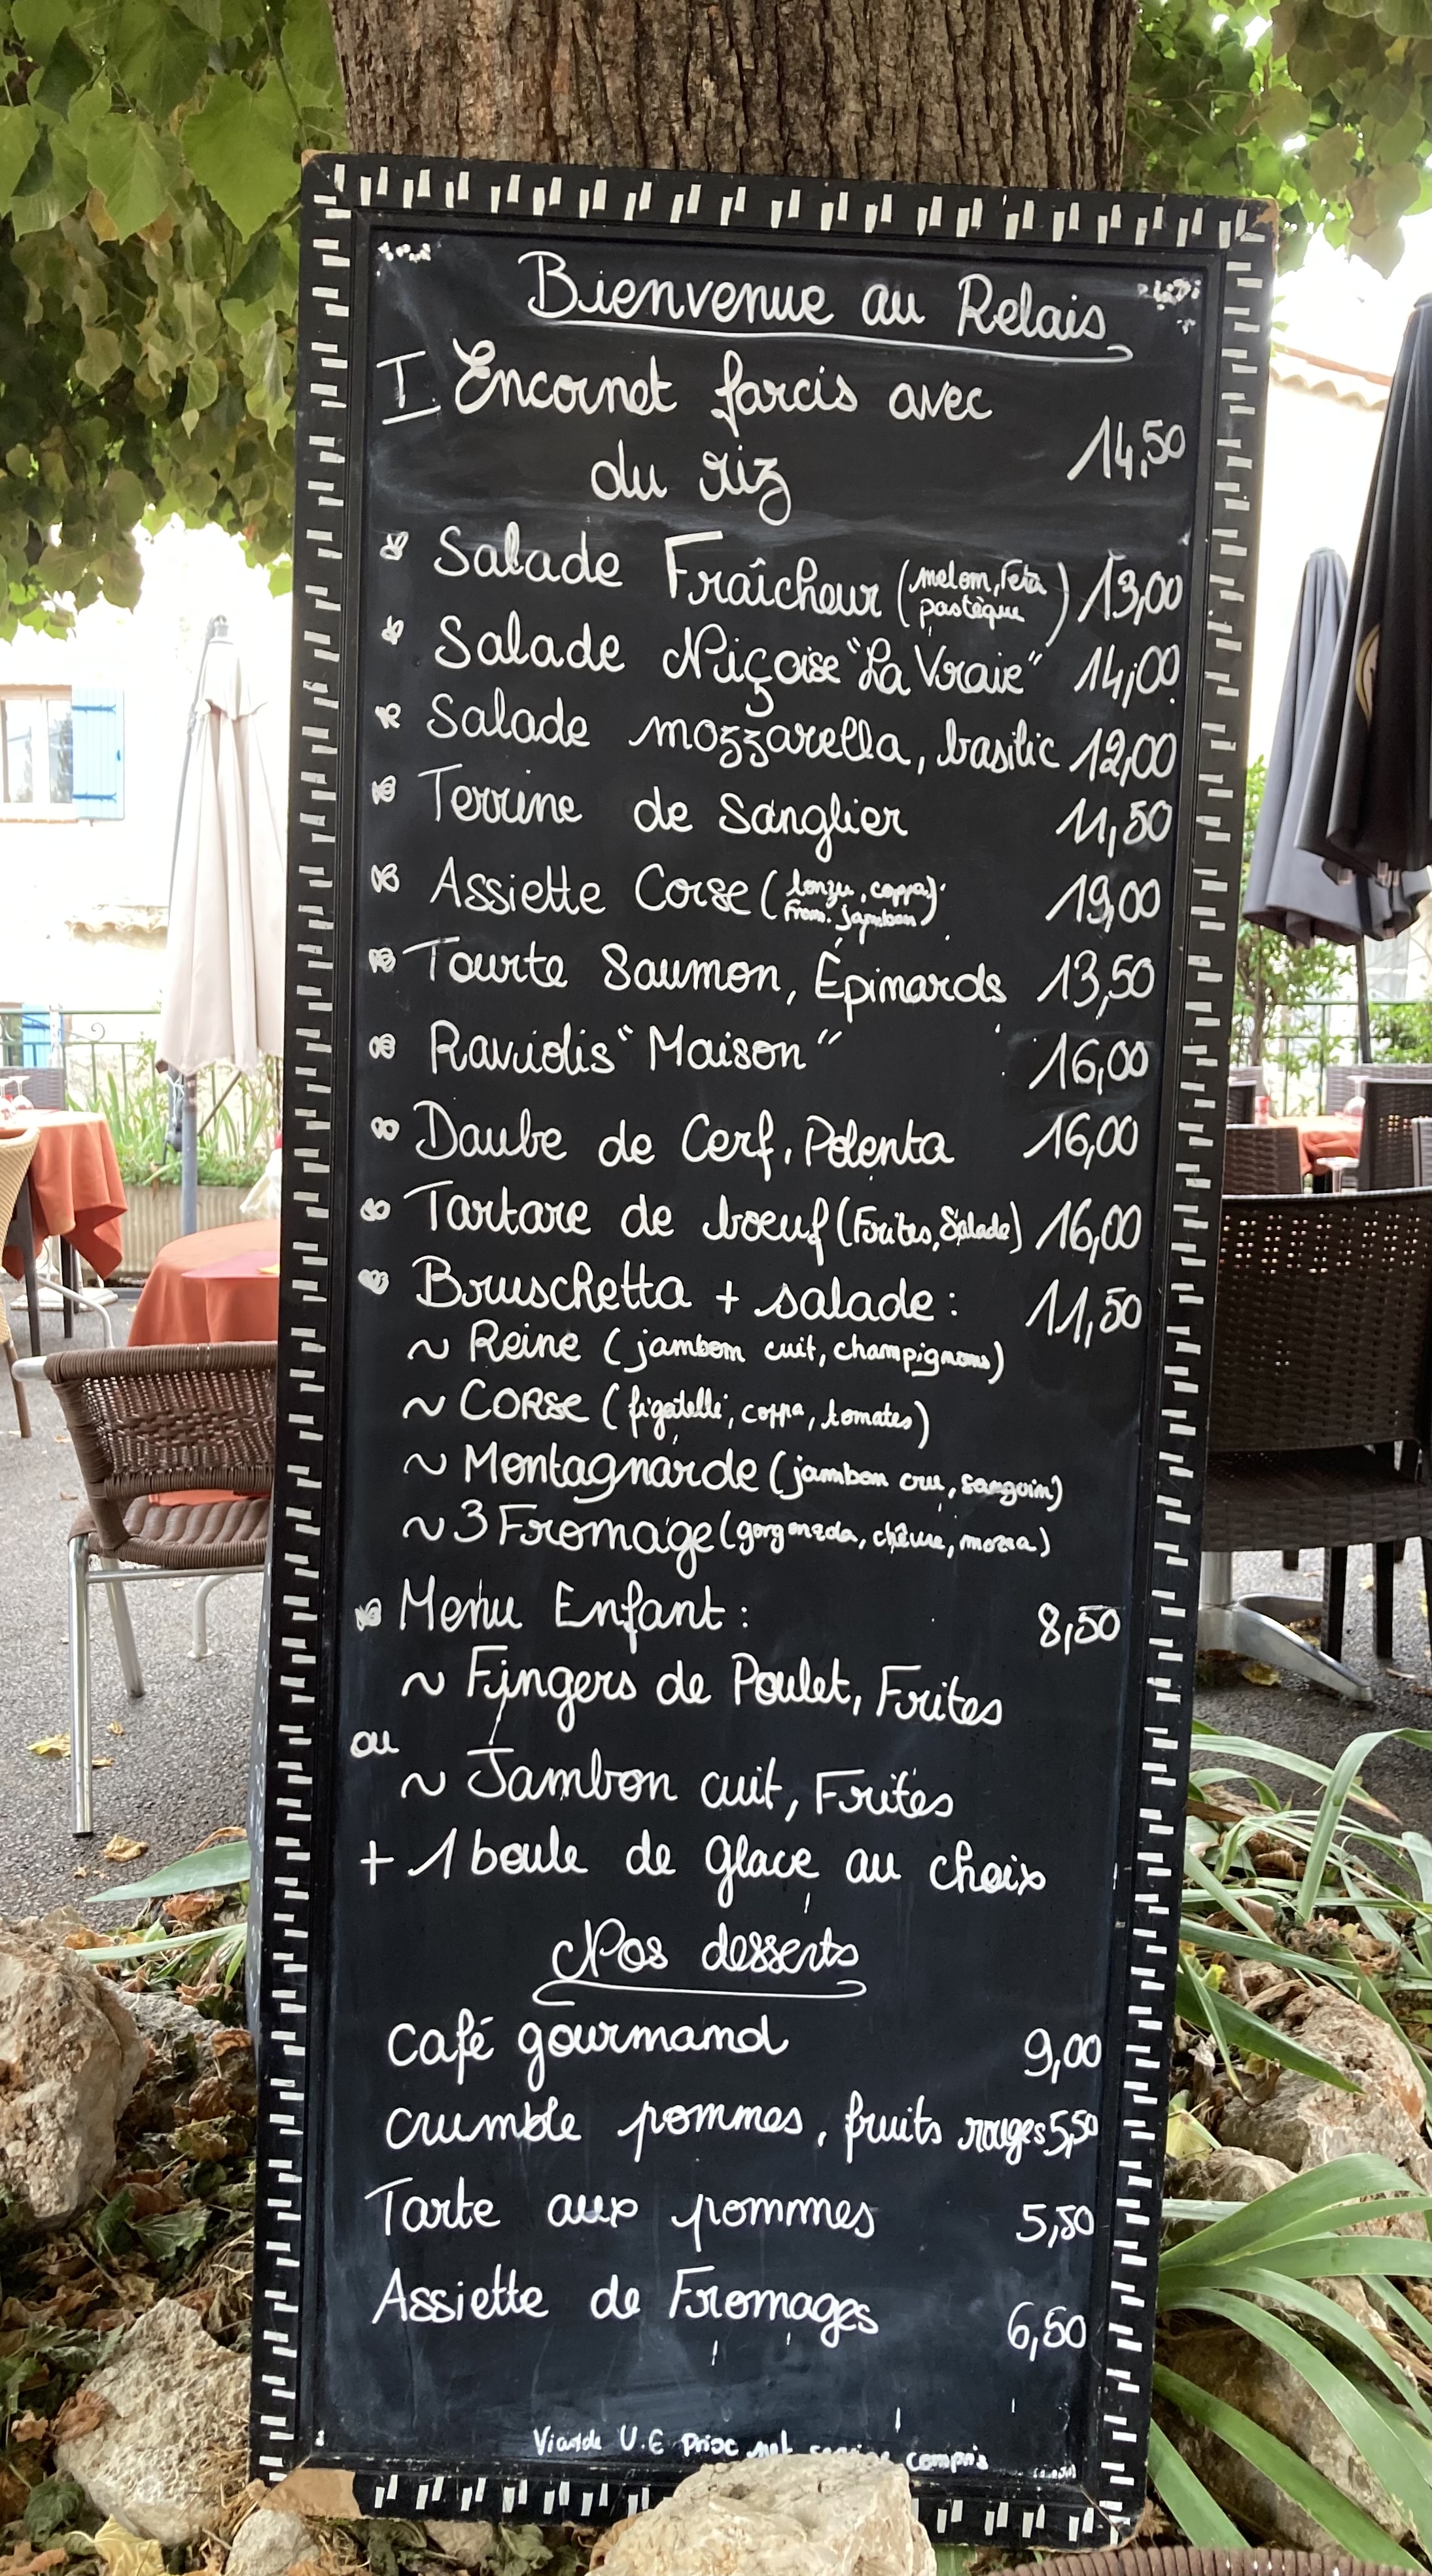 Bienvenue au Relais
I Encornet farcis avec
du riz 14,50
Salade Fraîcheur (melon, Feta 13,00
pastèque)
Salade Niçoise "La Vraie" 14,00
Salade mozzarella, basilic 12,00
Terrine de Sanglier 11,50
Assiette Corse (lonzu, coppa, 19,00
from. jambon)
Tourte Saumon, Épinards 13,50
Raviolis "Maison" 16,00
Daube de Cerf, Polenta 16,00
Tartare de boeuf (Frites, Salade) 16,00
Bruschetta + salade : 11,50
~ Reine (jambon cuit, champignons)
~ CORSE (figatelli, coppa, tomates)
~ Montagnarde (jambon cru, sanguin)
~ 3 Fromage (gorgonzola, chèvre, mozza)
Menu Enfant : 8,50
~ Fingers de Poulet, Frites
ou
~ Jambon cuit, Frites
+ 1 boule de glace au choix
Nos desserts
Café gourmand 9,00
Crumble pommes, fruits rouges 5,50
Tarte aux pommes 5,50
Assiette de Fromages 6,50
Viande U.E Prix net service compris